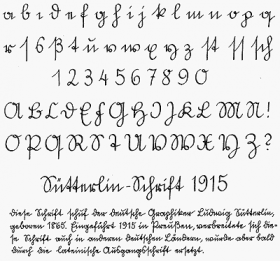 a b c d e f g h i j k l m n o p q
r ſ s ß t u v w x y z ſt ſſ ſch
1 2 3 4 5 6 7 8 9 0
A B C D E F G H I J K L M N !
O P Q R S T U V W X Y Z ?
Sütterlin-Schrift 1915
Diese Schrift schuf der deutsche Graphiker Ludwig Sütterlin,
geboren 1865. Eingeführt 1915 in Preußen, verbreitete sich die-
se Schrift auch in anderen deutschen Ländern, wurde aber bald
durch die lateinische Ausgangsschrift ersetzt.